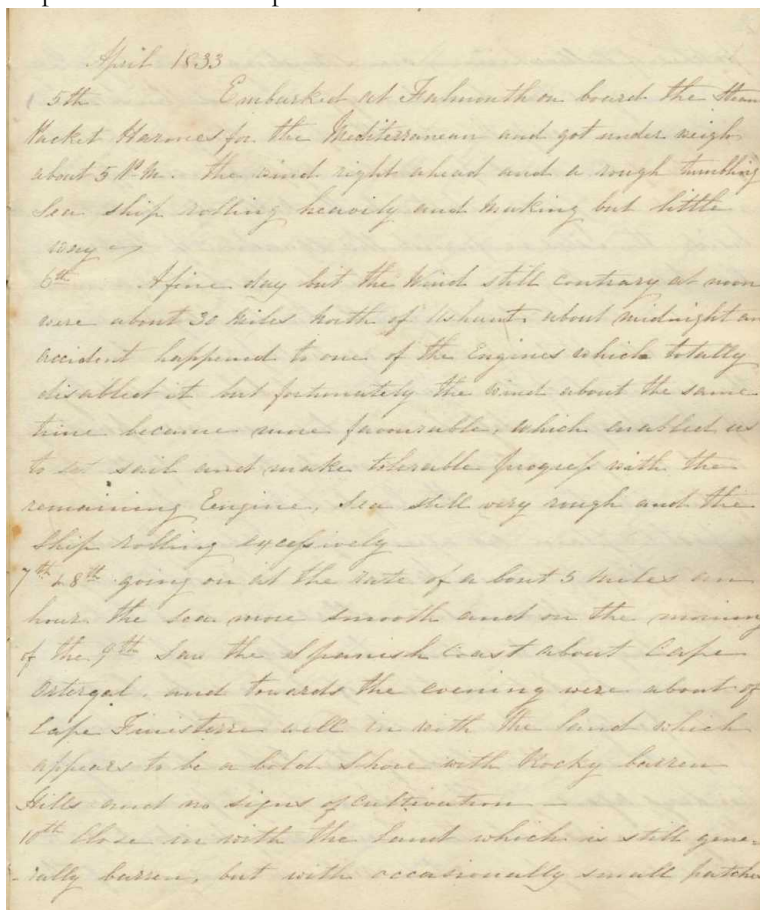 April 1833
5th Embarked at Falmouth on board the Steam
Packet Hermes for the Mediterranean and got under weigh
about 5 P.M. the wind right ahead and a rough tumbling
Sea ship rolling heavily and making but little
way
6th A fine day but the Wind still contrary at noon
were about 30 Miles North of Ushant, about midnight an
accident happened to one of the Engines which totally
disabled it but fortunately the wind about the same
time became more favourable, which enabled us
to set sail and make tolerable progress with the
remaining Engine, Sea still very rough and the
Ship rolling excessively
7th & 8th going on at the rate of about 5 Miles an
hour the sea more smooth and on the morning
of the 9th Saw the Spanish Coast about Cape
Ortergal. and towards the evening were about of
Cape Finisterre well in with the land which
appears to be a bold Shore with Rocky barren
Hills and no signs of cultivation
10th Close in with the land which is still gene-
-rally barren, but with occasionally small patches